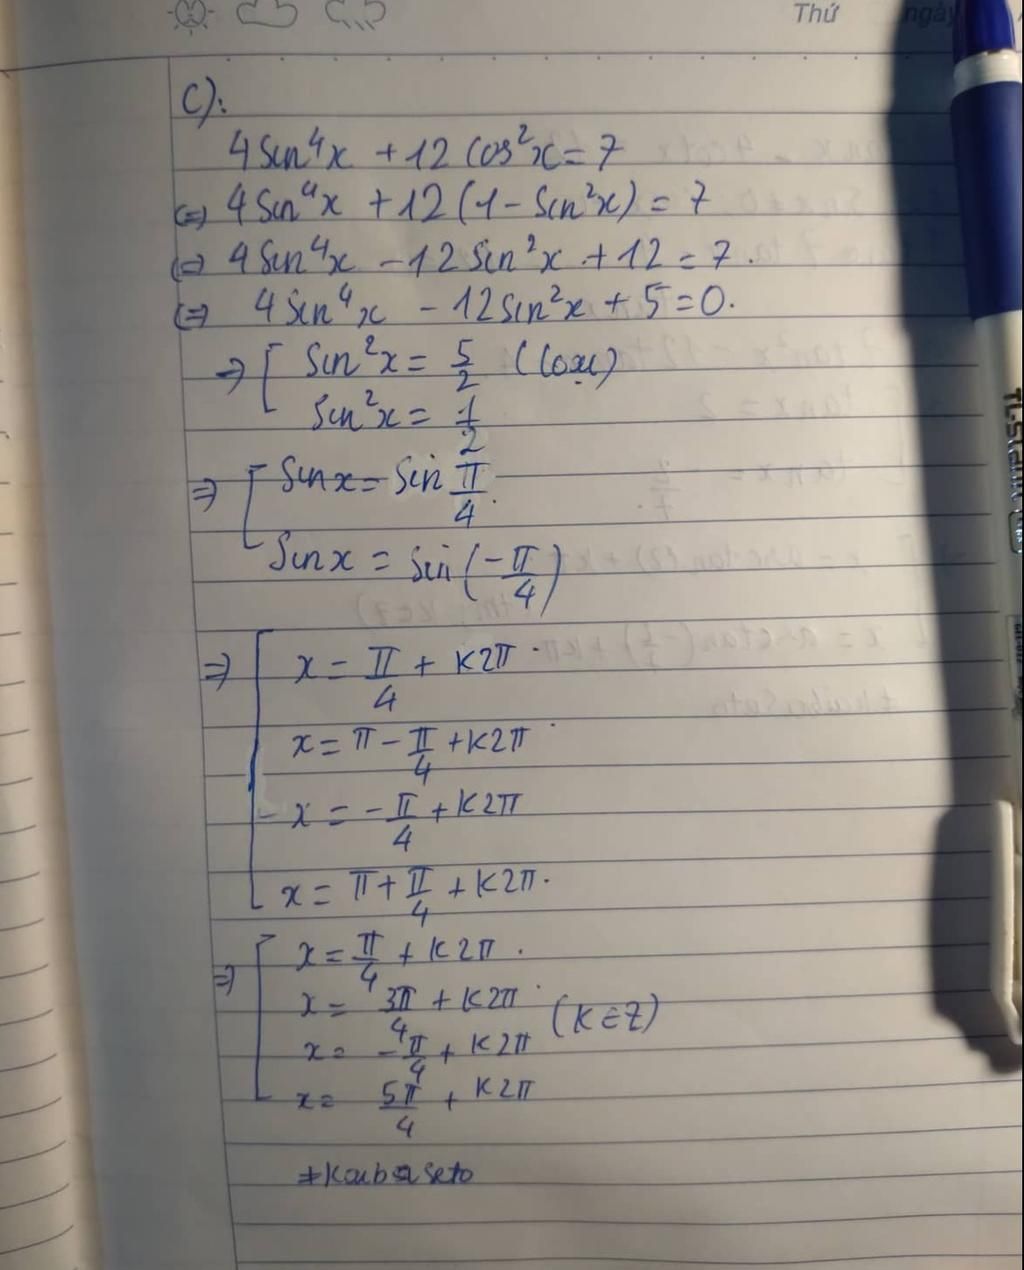 Thứ ngày
c):
4 sin⁴x + 12 cos²x = 7
(=) 4 sin⁴x + 12 (1 - sin²x) = 7
(=) 4 sin⁴x - 12 sin²x + 12 = 7.
(=) 4 sin⁴x - 12 sin²x + 5 = 0.
=) [ sin²x = 5/2 (loại)
sin²x = 1/2
=) [ sin x = sin π/4.
sin x = sin (-π/4)
=) [ x = π/4 + k2π.
x = π - π/4 + k2π
x = -π/4 + k2π
x = π + π/4 + k2π.
=) [ x = π/4 + k2π.
x = 3π/4 + k2π
x = -π/4 + k2π (k ∈ Z)
x = 5π/4 + k2π
#kaibaseto
TL